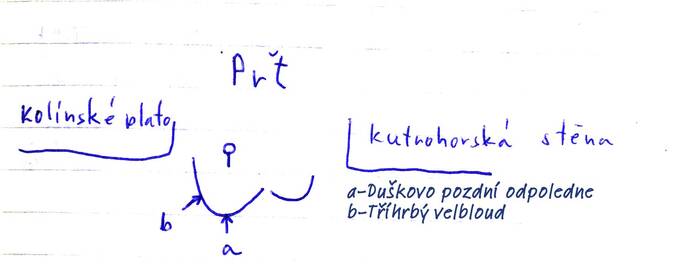 Pršt
Kolínské plato
Kutnohorská stěna
a-Duškovo pozdní odpoledne
b-Tříhrbý velbloud
b
a